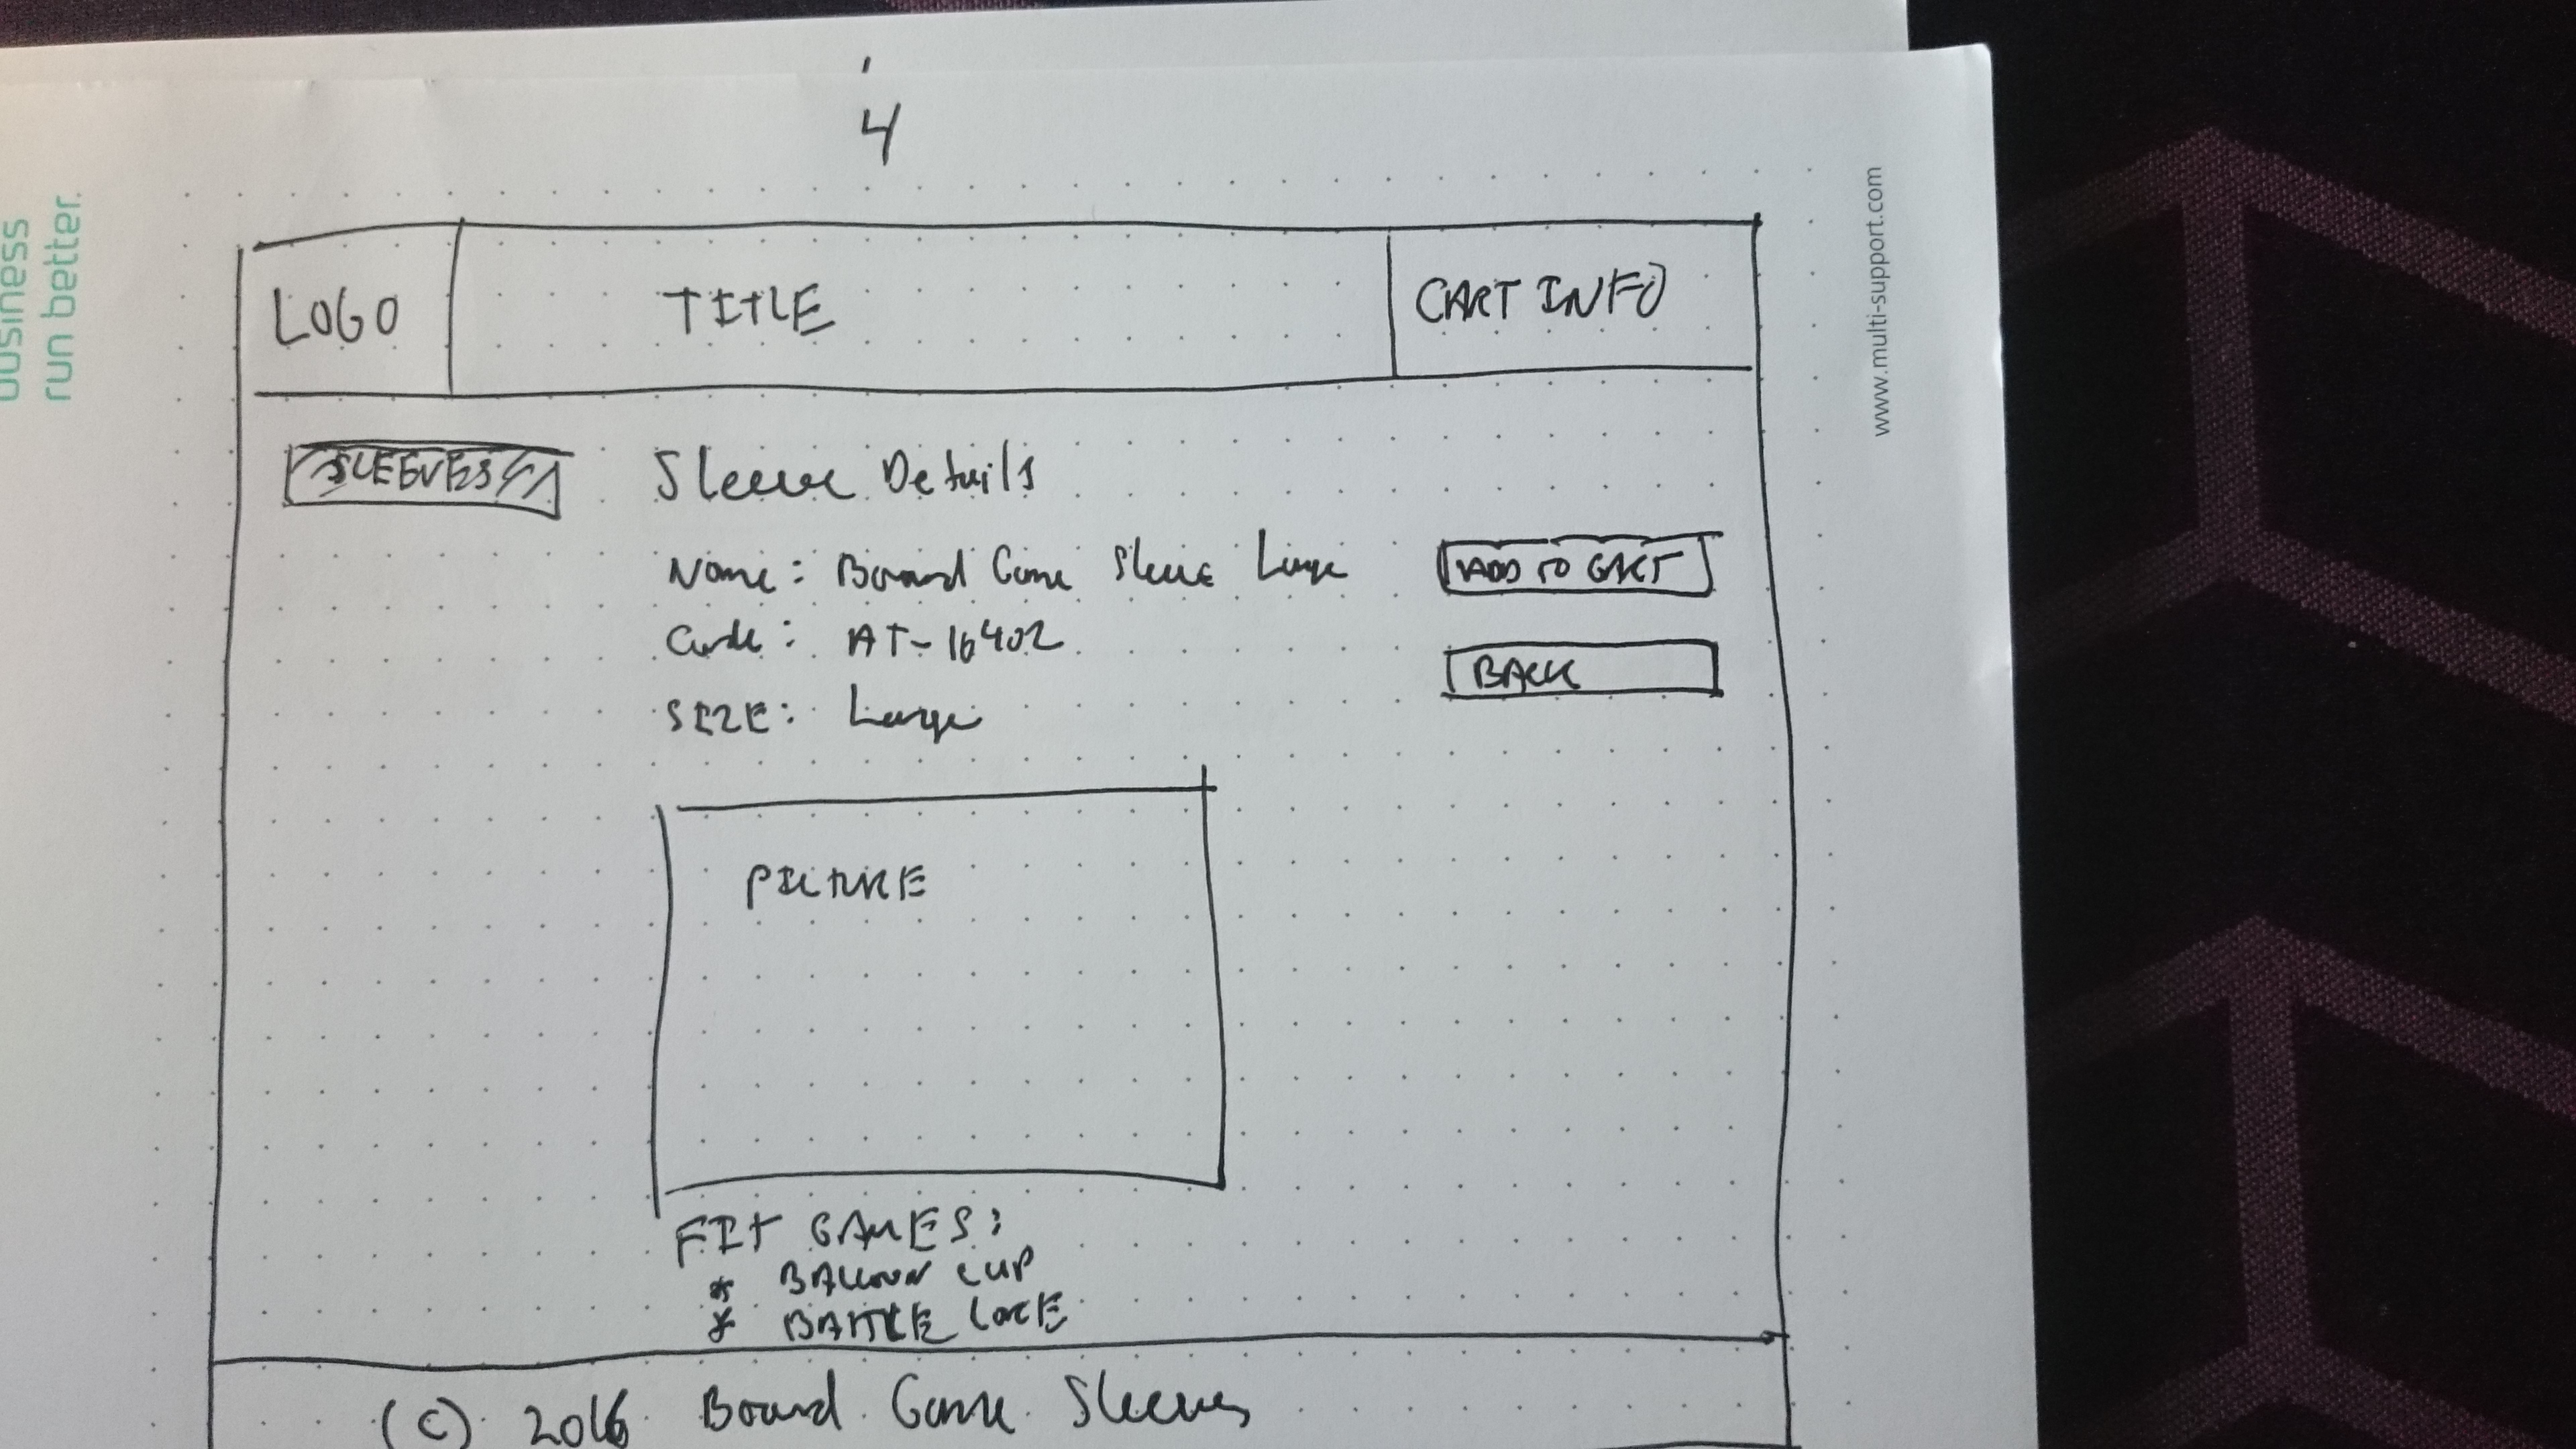 4
business
run better.
www.multi-support.com
LOGO
TITLE
CART INFO
SLEEVES
Sleeve Details
Name: Board Game Sleeve Large
Code: AT-16402
SIZE: Large
ADD TO CART
BACK
PICTURE
FIT GAMES:
* BALLOON CUP
* BATTLE LORE
(C) 2016 Board Game Sleeves